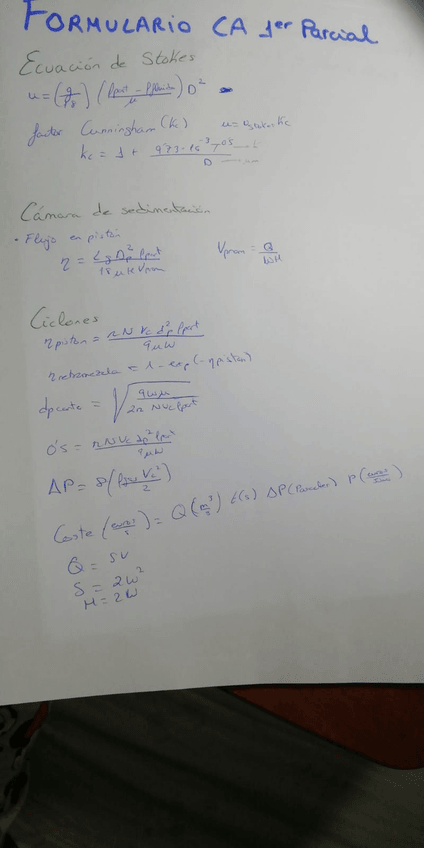 FORMULARIO CA 1er Parcial
Ecuación de Stokes
u = (g/18) (ρpart - ρfluido/μ) D²
factor Cunningham (Kc) u = ustokes Kc
kc = 1 + 9'73·10⁻³ T⁰'⁵ / D
Cámara de sedimentación
• Flujo en pistón
η = L g Dp² ρpart / 18 μ H Vprom Vprom = Q / WH
Ciclones
η piston = π N Vc dp² ρpart / 9 μ W
η retromezcla = 1 - exp (-η piston)
dp corte = √ 9 W μ / 2π N Vc ρpart
0'5 = π N Vc dp² ρpart / 9 μ W
ΔP = 8 (Vc² / 2)
Coste (euros / s) = Q (m³ / s) t(s) ΔP (Pascales) P
Q = SV
S = 2W²
H = 2W